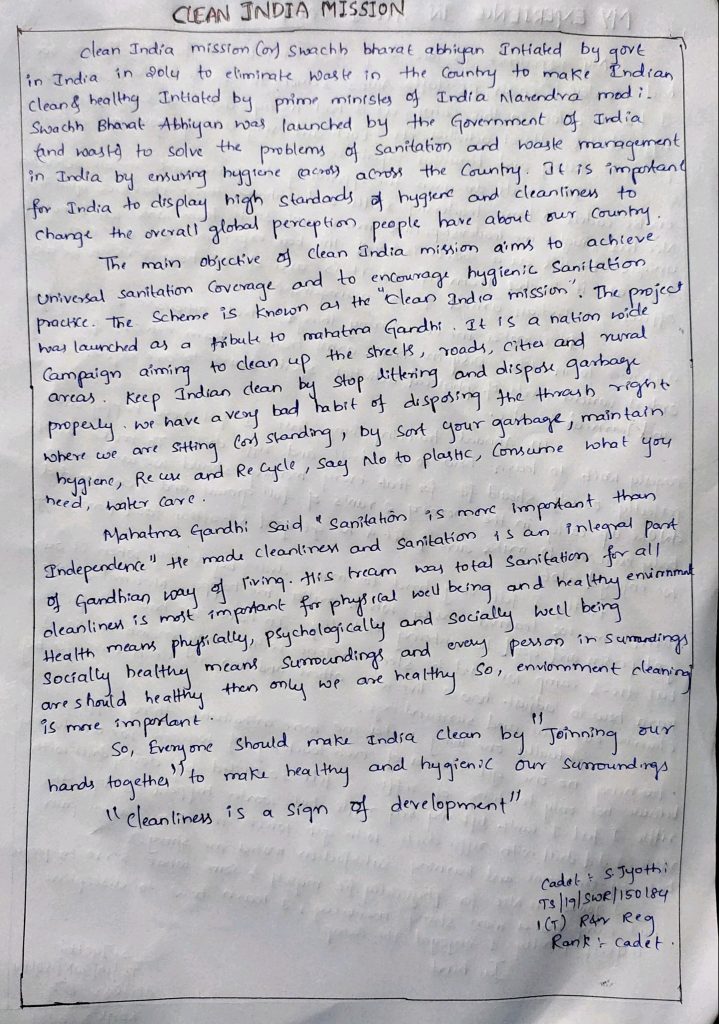 CLEAN INDIA MISSION
Clean India mission (or) Swachh bharat abhiyan Intiated by govt
in India in 2014 to eliminate waste in the Country to make Indian
clean & healthy Intiated by prime minister of India Narendra modi.
Swachh Bharat Abhiyan was launched by the Government of India
(and waste) to solve the problems of sanitation and waste management
in India by ensuring hygiene (across) across the Country. It is important
for India to display high standards of hygiene and cleanliness to
change the overall global perception people have about our Country.
The main objective of clean India mission aims to achieve
Universal sanitation Coverage and to encourage hygienic Sanitation
practice. The Scheme is known as the "Clean India mission". The project
was launched as a tribute to mahatma Gandhi. It is a nation wide
Campaign aiming to clean up the streets, roads, cities and rural
areas. Keep Indian clean by stop littering and dispose garbage
properly. we have a very bad habit of disposing the thrash right
where we are sitting (or) standing, by sort your garbage, maintain
hygiene, Re use and Re cycle, say No to plastic, Consume what you
need, water care.
Mahatma Gandhi Said "Sanitation is more important than
Independence" He made cleanliness and Sanitation is an integral part
of Gandhian way of living. His tream was total Sanitation for all
cleanliness is most important for physical well being and healthy envirnment
Health means physically, psychologically and socially well being
Socially healthy means surroundings and every person in surroundings
are should healthy then only we are healthy So, enviornment cleaning
is more important.
So, Everyone Should make India clean by "Joinning our
hands together" to make healthy and hygienic our surroundings
"Cleanliness is a sign of development"
Cadet : S Jyothi
TS/19/SWR/150184
1(T) R&V Reg
Rank :- Cadet.